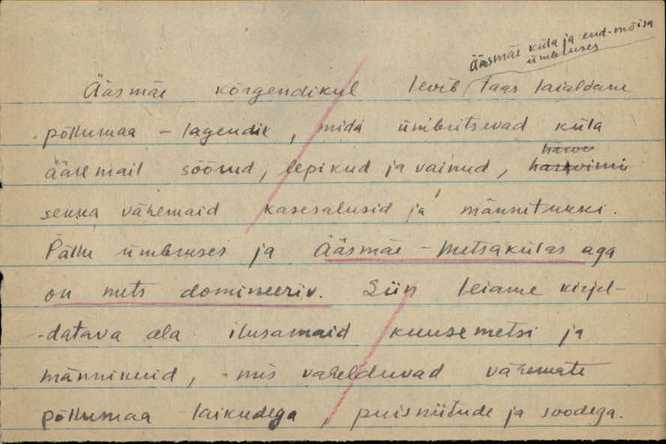 Ääsmäe küla ja end-mõisa
ümbruses
Ääsmäe kõrgendikul levib taas laialdane
põllumaa – lagendik, mida ümbritsevad küla
ääremail söörud, lepikud ja vainud,
sekka vähemaid kasesalusid ja männitukki.
Pällu ümbruses ja Ääsmäe – Metsakülas aga
on mets domineeriv. Siin leiame kirjel-
-datava ala ilusamaid kuusemetsi ja
männikuid, mis vahelduvad vähemate
põllumaa laikudega, puisniitude ja soodega.